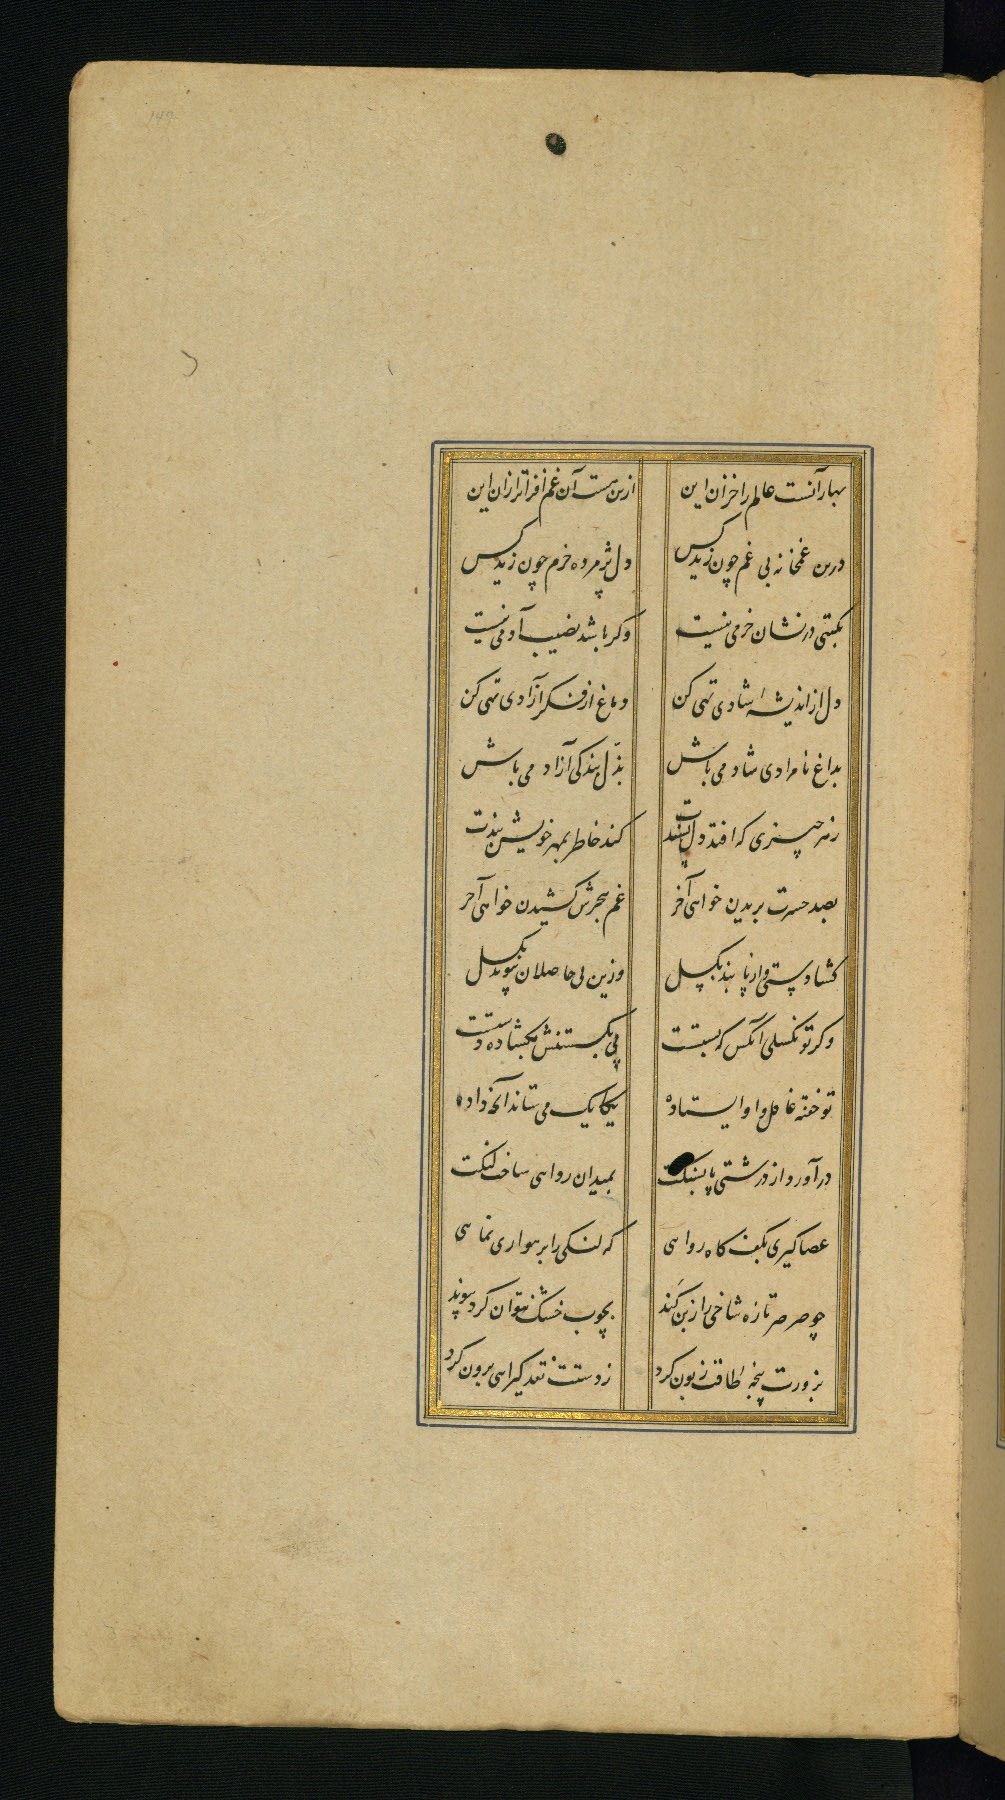 بهار آنست عالم را خزان این ازین هست آن غم افزاتر از آن این
درین غمخانه بی غم چون زید کس دل پژمرده خرم چون زید کس
بکیتی در نشان خرمی نیست وکر باشد نصیب آدمی نیست
دل از اندیشه شادی تهی کن دماغ از فکر آزادی تهی کن
بداغ نامرادی شاد می باش بذل بندکی آزاد می باش
زهر چیزی که افتد دل پسندت کند خاطر بمهر خویش بندت
بصد حسرت بریدن خواهی آخر غم هجرش کشیدن خواهی آخر
کشا دستی و از پا بند بکسل وزین بی حاصلان پیوند بکسل
وکر تو نکسلی آنکس که بستت پی بکسستنش بکشاده دستت
تو خفته غافل و او ایستاده یکایک می ستاند آنچه داده
درآورد از درشتی پا بسنکت بمیدان رواهی ساخت لنکت
عصا کیری بکف کاه رواهی که لنکی را برهواری نماهی
چو صرصر تازه شاخی را ز بن کند بچوب خشک نتوان کرد پیوند
بزورت پنجه طاقت زبون کرد ز دستت نقد کیراهی برون کرد